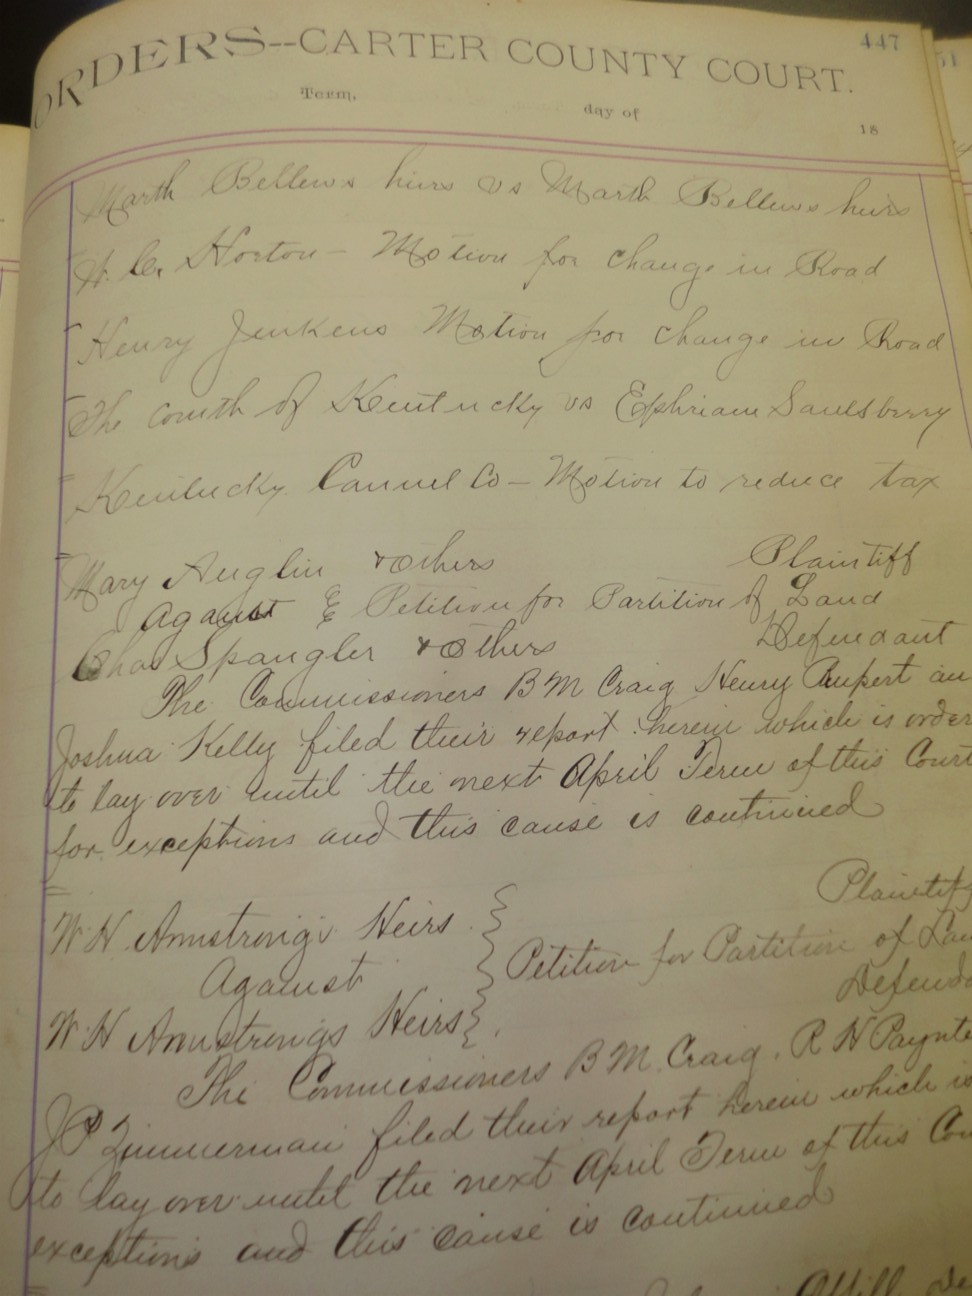 447
ORDERS--CARTER COUNTY COURT.
Term, day of 18
Marth Bellews heirs vs Marth Bellews heirs
H. C. Horton - Motion for change in Road
Henry Jenkens Motion for change in Road
The comth of Kentucky vs Ephriam Saulsberry
Kentucky Cannel Co - Motion to reduce tax
Mary Anglin & others Plaintiff
Against } Petition for Partition of Land
Chas Spangler & others Defendant
The Commissioners B M Craig Henry Rupert an
Joshua Kelly filed their report herein which is order
to lay over until the next April Term of this Court
for exceptions and this cause is continued
W H Armstrongs Heirs } Plaintiff
Against Petition for Partition of Lan
W H Armstrongs Heirs } Defenda
The Commissioners B M Craig, R H Paynte
J P Zimmerman filed their report herein which is
to lay over until the next April Term of this Cou
exceptions and this cause is continued